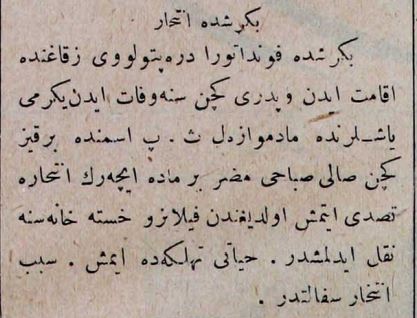 بكرشده انتحار
بكرشده فونداتورا دره پتولووی زقاغنده
اقامت ایدن و پدری كچن سنه وفات ایدن یكرمی
یاشلرنده مادموازه ل ث . پ اسمنده برقیز
كچن صالی صباحی مضر بر ماده ایچه رك انتحاره
تصدی ایتمش اولدیغندن فیلانزو خسته خانه سنه
نقل ایدلمشدر . حیاتی تهلكه ده ایمش . سبب
انتحار سفالتدر .